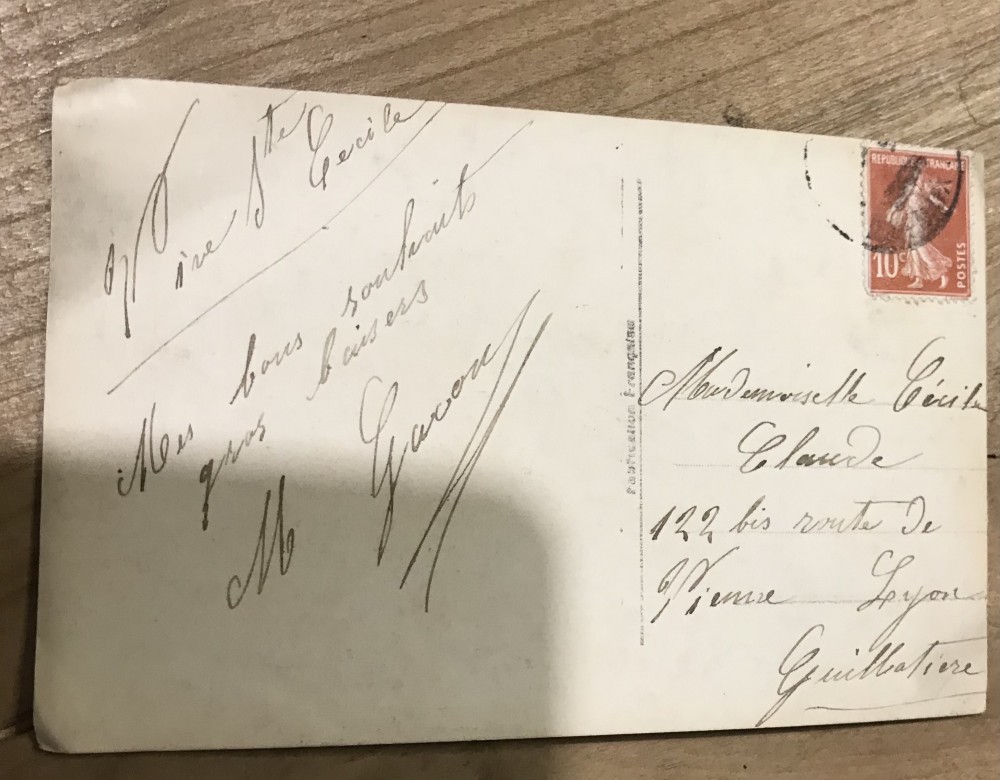 Vive Ste Cecile
Mes bons souhaits
gros baisers
M Gacon
Fabrication Française
REPUBLIQUE FRANÇAISE
10c
POSTES
Mademoiselle Cécile
Claude
122 bis route de
Vienne Lyon
Guillotiere